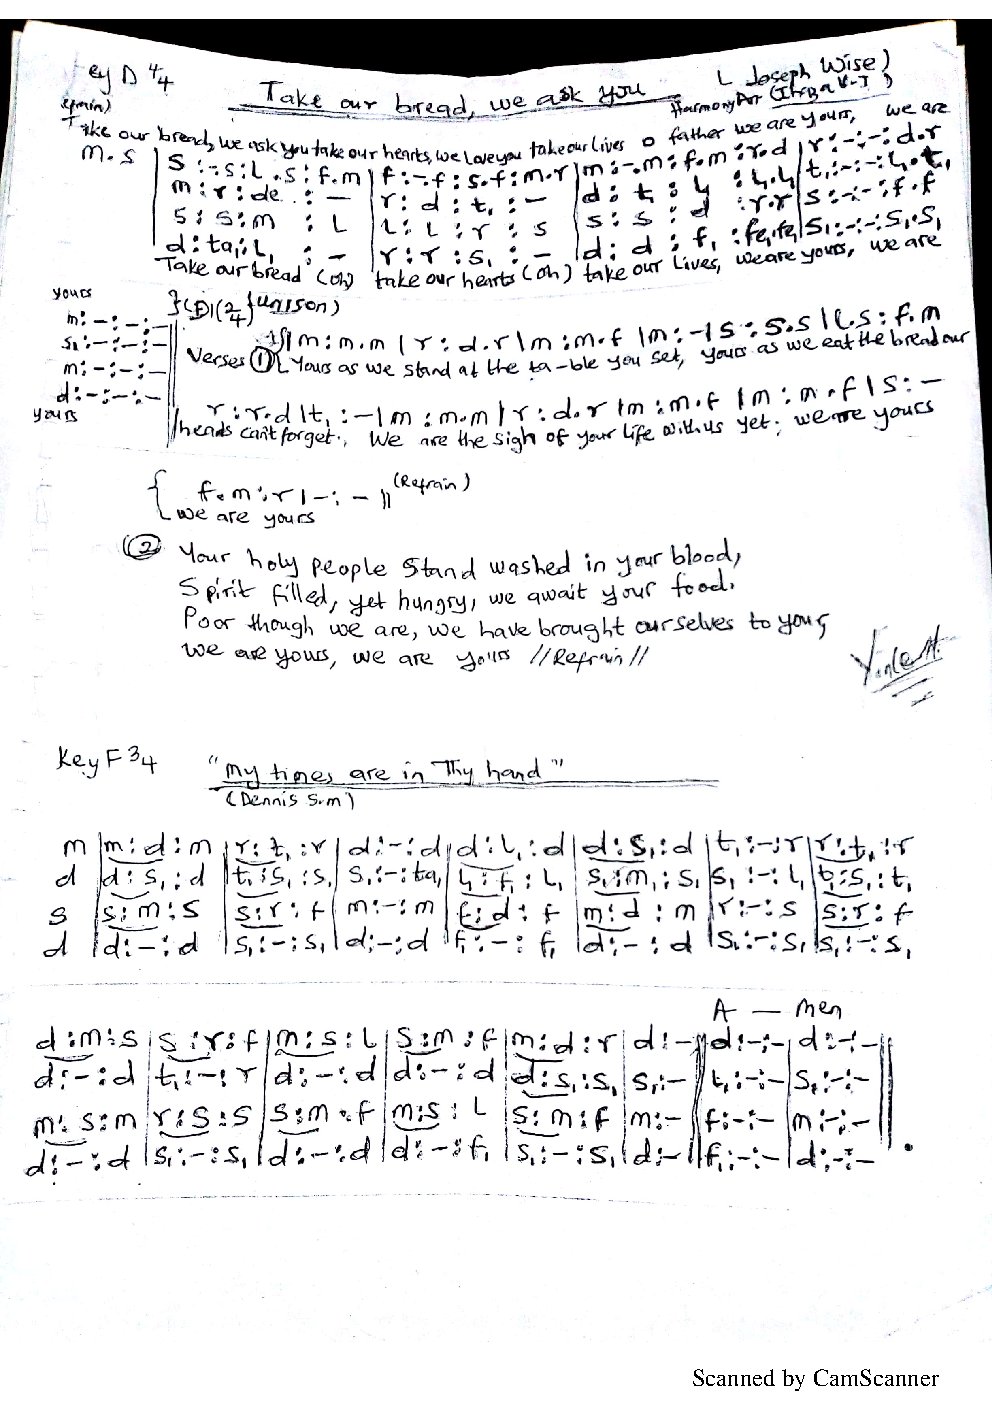 ey D 4/4
Take our bread, we ask you ( Joseph Wise)
efrain) Harmony
Take our bread, we ask you take our hearts, we love you take our lives o father we are yours, we are
m.s | s :-.s:l .s:f.m | f:-.f:s.f:m.r | m:-.m:f.m:r.d | r:-:-:d.r
m:r:de:- | r:d:t₁:- | d:t₁:l₁:l₁.l₁ | t₁:-:-:l₁.t₁
s:s:m:l | l:l:r:s | s:s:d:r.r | s:-:-:f.f
d:ta₁:l₁:- | r:r:s₁:- | d:d:f₁:fe₁.fe₁ | s₁:-:-:s₁.s₁
Take our bread (oh) take our hearts (oh) take our lives, we are yours, we are
yours
m:-:-:-
s₁:-:-:-
m:-:-:-
d:-:-:-
yours
}(F)(2/4){unison)
|m:m.m|r:d.r|m:m.f|m:-|s:s.s|l.s:f.m
Verses ① Yours as we stand at the ta-ble you set, yours as we eat the bread our
r:r.d|t₁:-|m:m.m|r:d.r|m:m.f|m:m.f|s:-
hearts can't forget., We are the sigh of your life with us yet; we are yours
f.m:r|-:-|| (Refrain)
we are yours
② Your holy people stand washed in your blood,
Spirit filled, yet hungry, we await your food.
Poor though we are, we have brought ourselves to you,
we are yours, we are yours //Refrain//
Key F 3/4 "My times are in Thy hand"
(Dennis S.m)
m |m:d:m |r:t₁:r |d:-:d |d:l₁:d |d:s₁:d |t₁:-:r |r:t₁:r
d |d:s₁:d |t₁:s₁:s₁ |s₁:-:ta₁ |l₁:f₁:l₁ |s₁:m₁:s₁ |s₁:-:l₁ |t₁:s₁:t₁
s |s:m:s |s:r:f |m:-:m |f:d:f |m:d:m |r:-:s |s:r:f
d |d:-:d |s₁:-:s₁ |d:-:d |f₁:-:f₁ |d:-:d |s₁:-:s₁ |s₁:-:s₁
A — men
d:m:s |s:r:f |m:s:l |s:m:f |m:d:r |d:- ||d:-:- |d:-:-
d:-:d |t₁:-:r |d:-:d |d:-:d |d:s₁:s₁ |s₁:- ||t₁:-:- |s₁:-:-
m:s:m |r:s:s |s:m:f |m:s:l |s:m:f |m:- ||f:-:- |m:-:-
d:-:d |s₁:-:s₁ |d:-:d |d:-:f₁ |s₁:-:s₁ |d:- ||f₁:-:- |d:-:-
Scanned by CamScanner